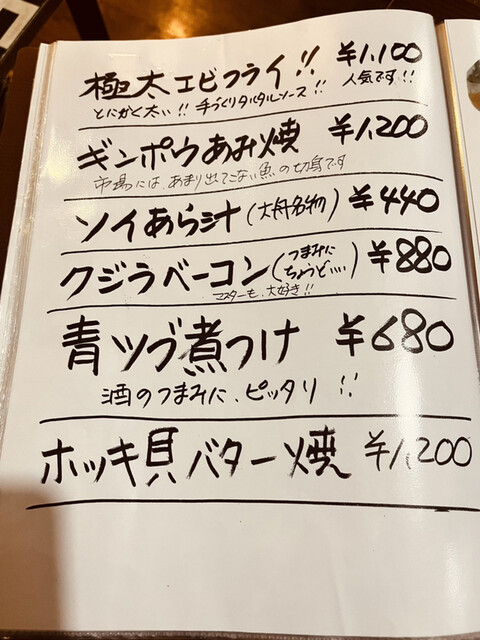 極太エビフライ!! ¥1,100
とにかく太い!! 手づくりタルタルソース!! 人気です!!
ギンポウあみ焼 ¥1,200
市場には、あまり出てこない魚の切身です
ソイあら汁(大舟名物) ¥440
クジラベーコン(つまみにちょうど....) ¥880
マスターも、大好き!!
青ツブ煮つけ ¥680
酒のつまみに、ピッタリ!!
ホッキ貝バター焼 ¥1,200